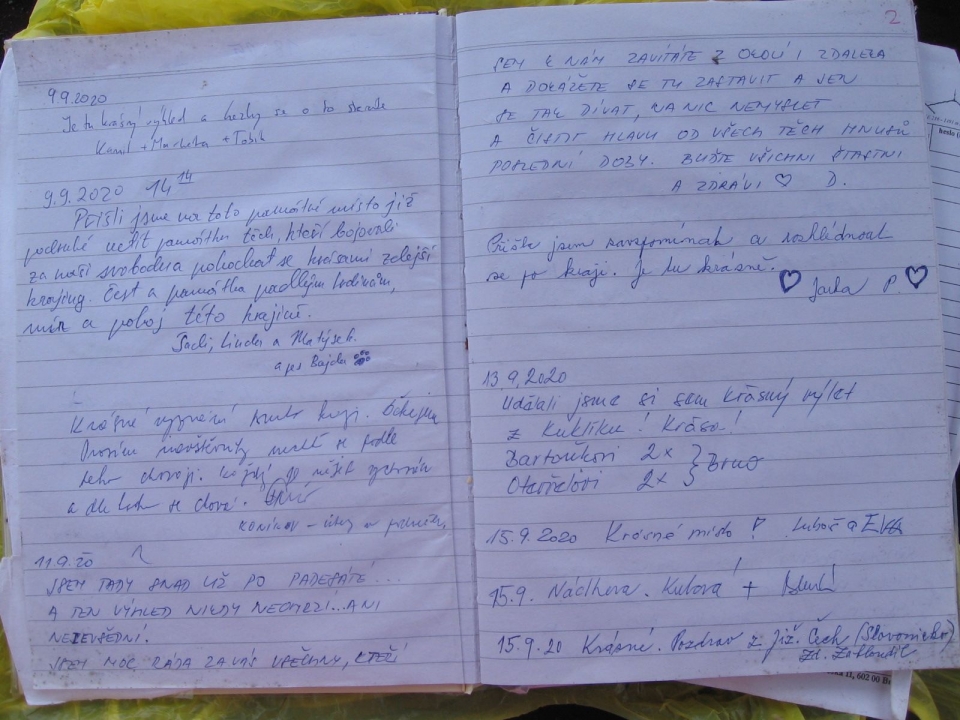 9.9.2020
Je tu krásný výhled a hezky se o to
Kamil + Markéta + Tobík
9.9.2020 14 14
Přišli jsme na toto památné místo již
podruhé uctít památku těch, kteří bojovali
za naši svobodu a pokochat se krásami zdejší
krajiny. Čest a památka padlým hrdinům,
mír a pokoj této krajině.
Linda a Matýsek.
a pes Bajda
Krásné vyznání tomuto kraji.
Prosím návštěvníky
a dle toho se chová.
11.9.20
JSEM TADY SNAD UŽ PO PADESÁTÉ...
A TEN VÝHLED NIKDY NEOMRZÍ... ANI
NEZEVŠEDNÍ.
JSEM MOC RÁDA ZA VÁS VŠECHNY, KTEŘÍ
2
SEM K NÁM ZAVÍTÁTE Z OKOLÍ I ZDALEKA
A DOKÁŽETE SE TU ZASTAVIT A JEN
SE TAK DÍVAT, NA NIC NEMYSLET
A ČISTIT HLAVU OD VŠECH TĚCH HNUSŮ
POSLEDNÍ DOBY. BUĎTE VŠICHNI ŠTASTNI
A ZDRÁVI ♡ D.
Přišla jsem zavzpomínat a rozhlédnout
se po kraji. Je tu krásně.
♡ Jarka P ♡
13.9.2020
Udělali jsme si sem krásný výlet
z Kuklíku! Krása!
Bartouškovi 2x } Brno
2x
15.9.2020 Krásné místo! Luboš a Eva
15.9. Nádhera. Kubová +
15.9.20 Krásné. Pozdrav z Již. Čech (Slavonicko)
Zd.
602 00